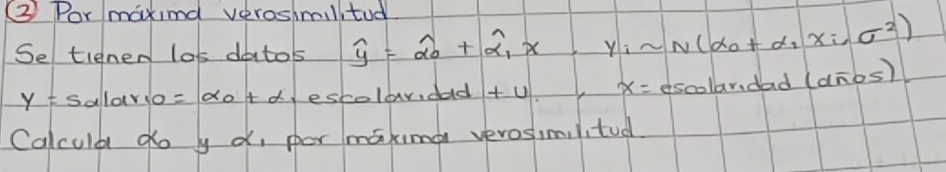 ② Por máxima verosimilitud.
Se tienen los datos ŷ = α̂₀ + α̂₁ x , yᵢ ~ N(α₀ + α₁ xᵢ, σ²)
y = salario = α₀ + α₁ escolaridad + u. , x = escolaridad (años).
Calcula α₀ y α₁ por máxima verosimilitud.